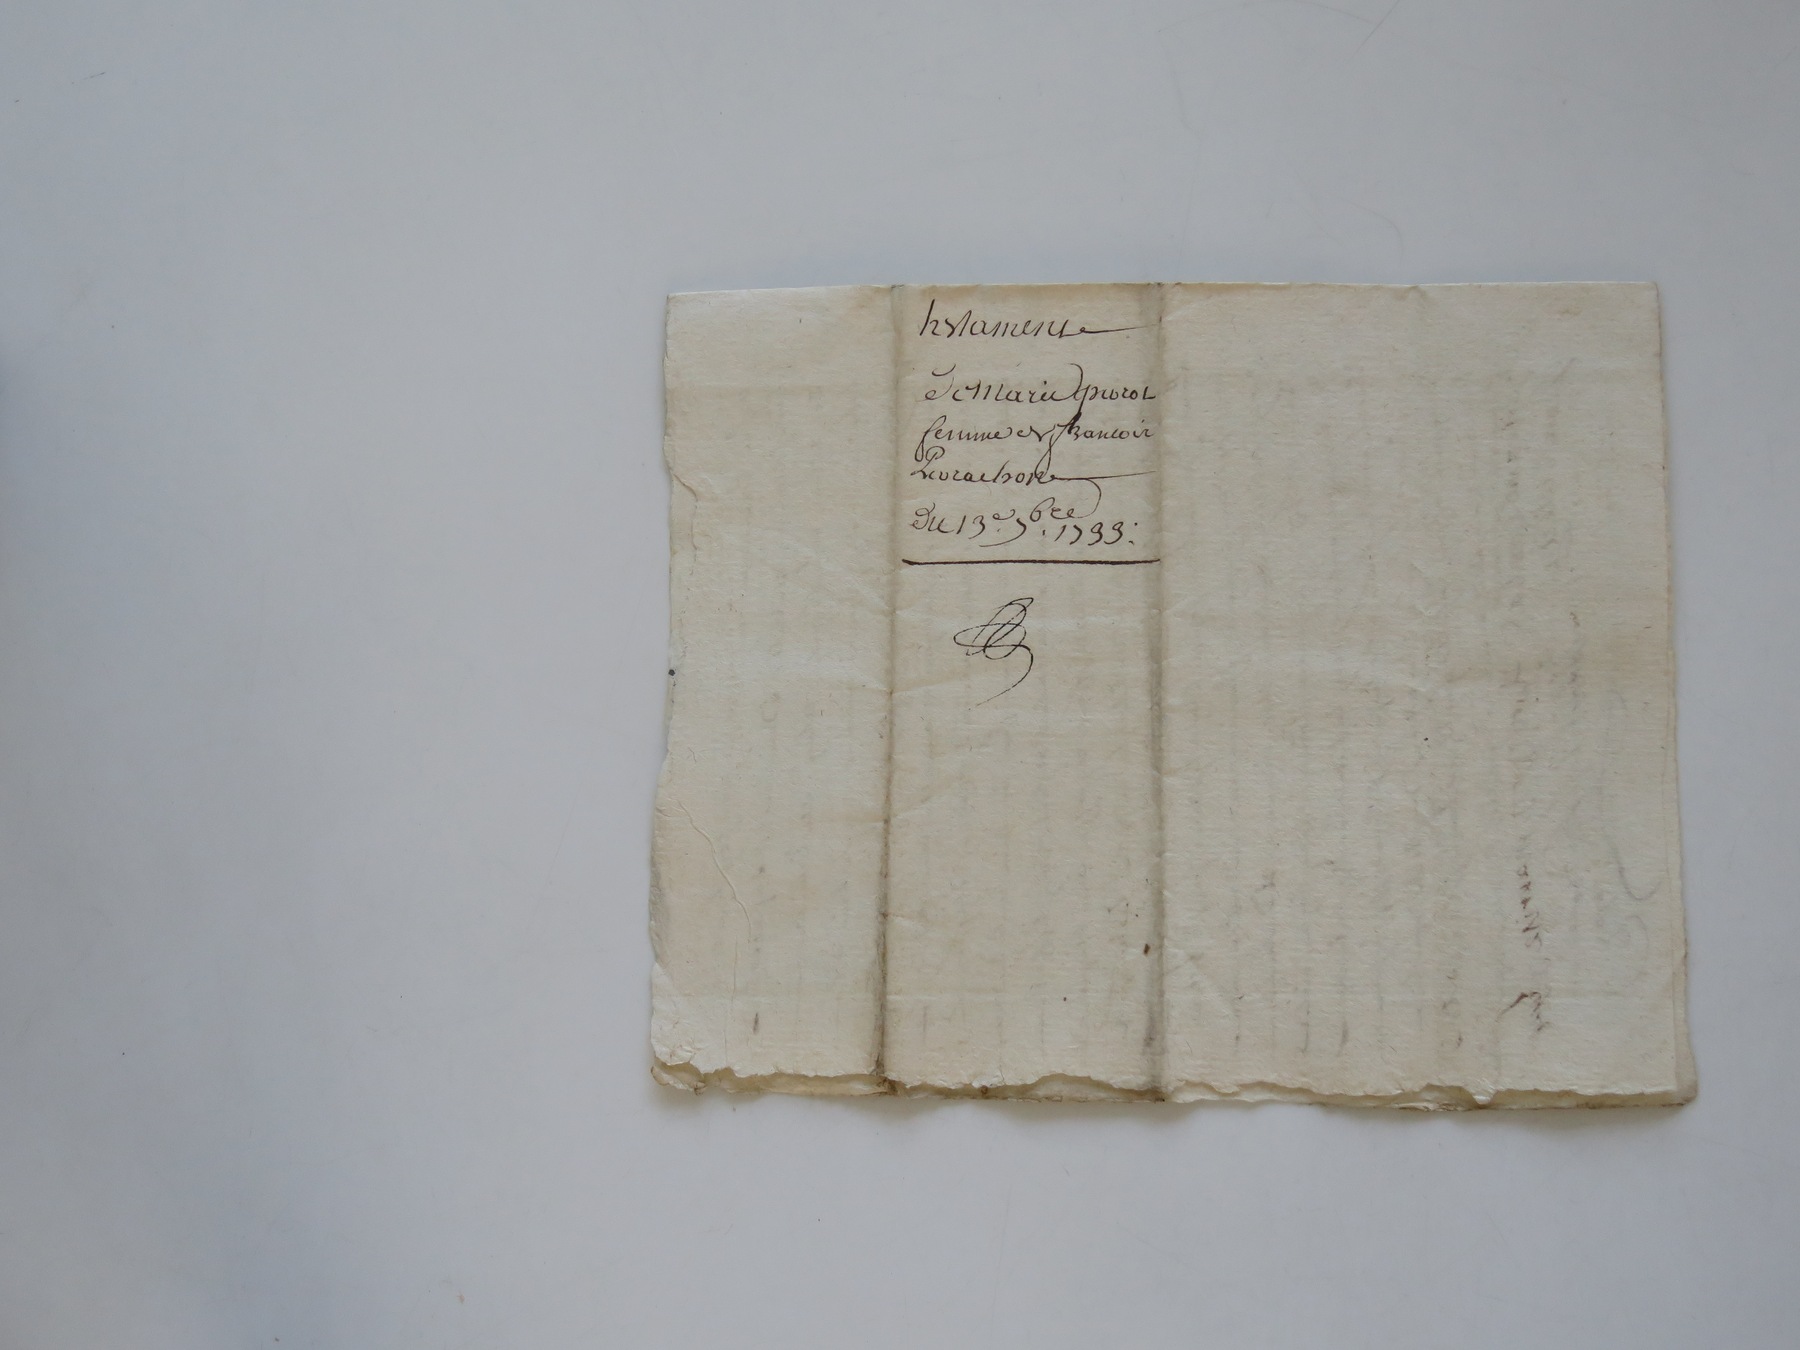 testament
de Marie pivot
femme de francois
Livrachon
Du 13e. 7bre. 1733: